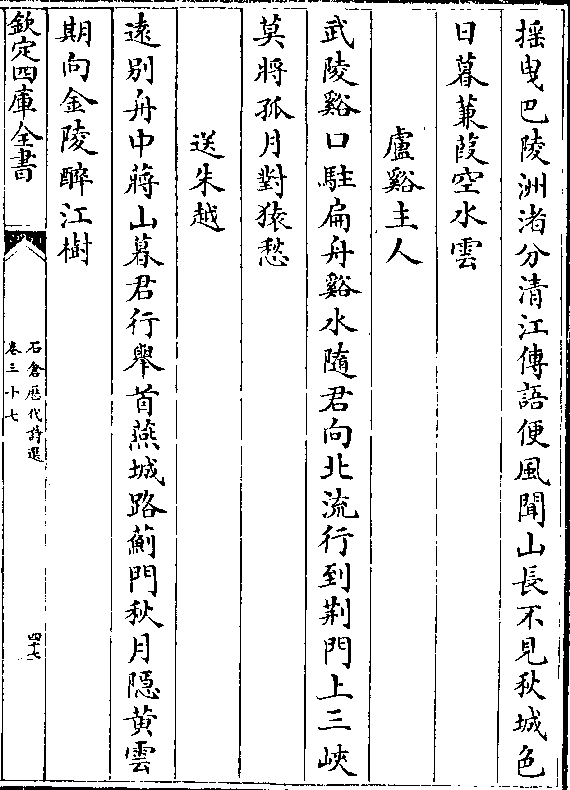 搖曳巴陵洲渚分清江傳語便風聞山長不見秋城色
日暮蒹葭空水雲
盧谿主人
武陵谿口駐扁舟谿水隨君向北流行到荆門上三峽
莫將孤月對猿愁
送朱越
遠別舟中蔣山暮君行舉首燕城路薊門秋月隱黄雲
期向金陵醉江樹
欽定四庫全書
石倉歴代詩選
卷三十七
四十七